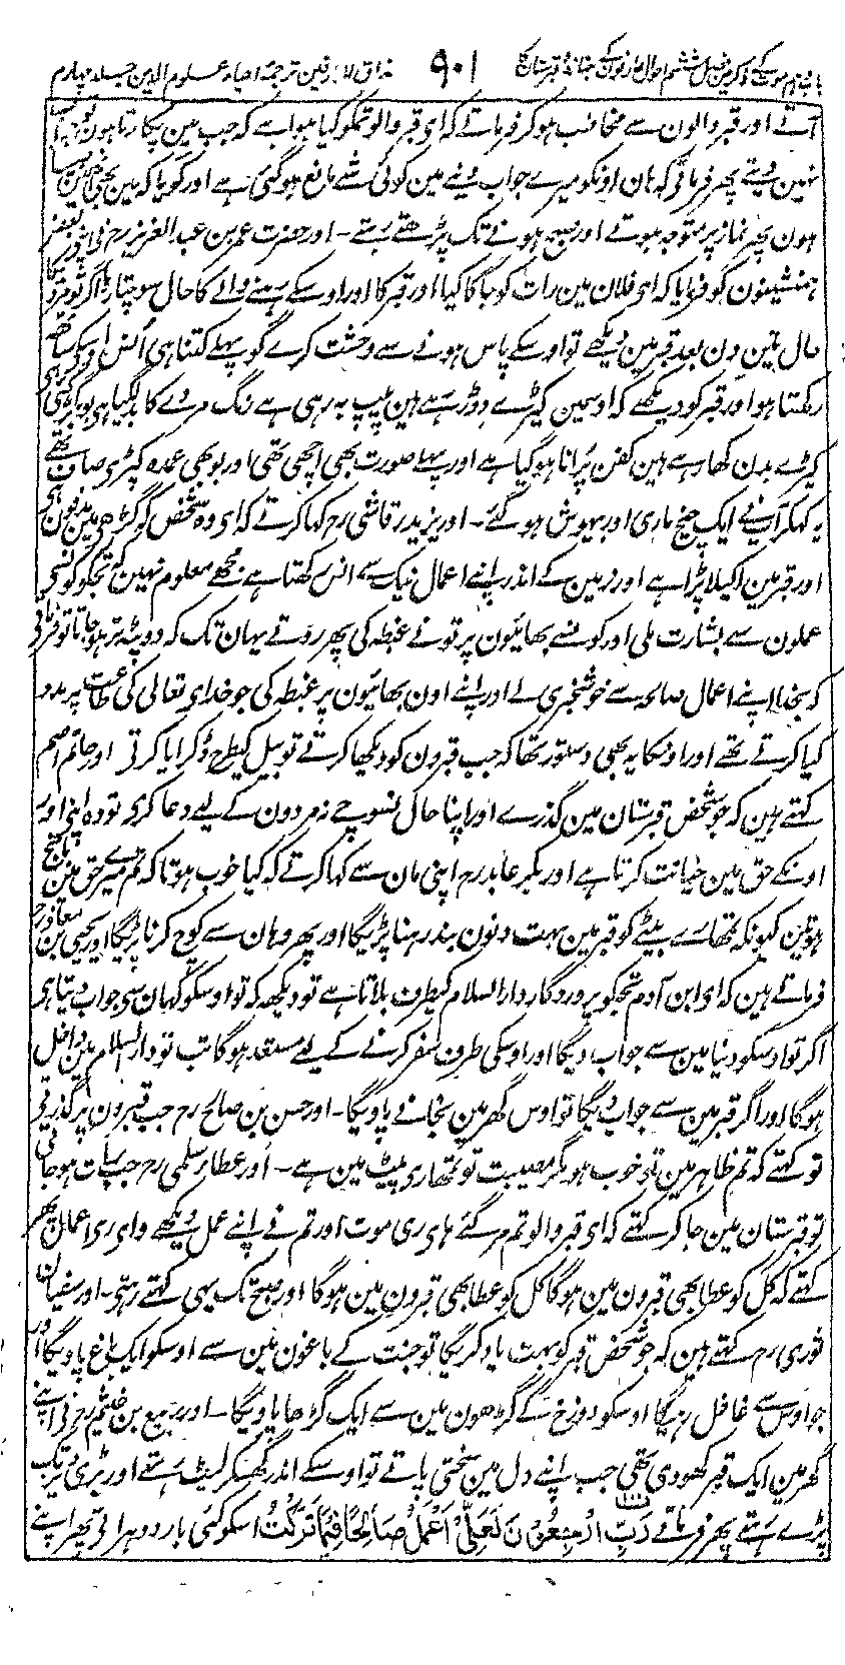 باب ہم موت کے ذکر مین فصل ششم احوال عارفون کے جنازہ قبرستان ۹۰۱ مذاق العارفین ترجمۂ احیاء علوم الدین جلد چہارم
آتے اور قبر والون سے مخاطب ہوکر فرماتے کہ ای قبر والو تمکو کیا ہوا ہے کہ جب مین پکارتا ہون تو جواب
نہین دیتے پھر فرماتے کہ ہان اونکو میرے جواب دینے مین کوئی شے مانع ہوگئی ہے اور گویا کہ مین بھی انہین سا
ہون پھر نماز پر متوجہ ہوتے اور صبح ہونے تک پڑھتے رہتے ۔ اور حضرت عمر بن عبد العزیز رح نے اپنے بعض
ہمنشینون کو فرمایا کہ ای فلان مین رات کو جاگا کیا اور قبر کا اور اوسکے رہنے والے کا حال سوچتا رہا اگر تو مردہ کا
حال تین دن بعد قبر مین دیکھے تو اوسکے پاس ہونے سے وحشت کرے گو پہلے کتنا ہی اُنس اوسکے ساتھ
رکھتا ہو اور قبر کو دیکھے کہ اوسمین کیڑے دوڑ رہے ہین پیپ بہ رہی ہے رنگ مردے کا بدل گیا ہی بو بگڑ گئی
کیڑے بدن کھا رہے ہین کفن پُرانا ہوگیا ہے اور پہلے صورت بھی اچھی تھی اور بو بھی عمدہ کپڑی صاف تھے
یہ کہکر آپ نے ایک چیخ ماری اور بیہوش ہوگئے ۔ اور یزید رقاشی رح کہا کرتے کہ ای وہ شخص کہ گڑھی مین مدفون ہی
اور قبر مین اکیلا پڑا ہے اور زمین کے اندر اپنے اعمال نیک سے انس رکھتا ہے مجھے معلوم نہین کہ تجکو کونسی
عملون سے بشارت ملی اور کونسے بھائیون پر تونے غبطہ کی پھر روتے یہان تک کہ دوپٹہ تر ہو جاتا تو فرماتے
کہ بخدا اپنے اعمال صالحہ سے خوشخبری لے اور اپنے اون بھائیون پر غبطہ کی جو خدای تعالی کی طاعت پر مدد
کیا کرتے تھے اور اونکا یہ بھی دستور تھا کہ جب قبرون کو دیکھا کرتے تو بیل کیطرح ڈکرایا کرتی اور حاتم اصم
کہتے ہین کہ جو شخص قبرستان مین گذرے اور اپنا حال نسوچے نہ مردون کے لیے دعا کری تو وہ اپنی اور
اونکے حق مین خیانت کرتا ہے اور بکر عابد رح اپنی مان سے کہا کرتے کہ کیا خوب ہوتا کہ تم میرے حق مین بانجھ
ہوتین کیونکہ تمھارے بیٹے کو قبر مین بہت دنون بند رہنا پڑیگا اور پھر وہان سے کوچ کرنا پڑیگا اور یحیی بن معاذ رح
فرماتے ہین کہ ای ابن آدم تجکو پروردگار دار السلام کیطرف بلاتا ہے تو دیکھ کہ تو اوسکو کہان سی جواب دیتا ہی
اگر تو اوسکو دنیا مین سے جواب دیگا اور اوسکی طرف سفر کرنے کے لیے مستعد ہوگا تب تو دار السلام مین داخل
ہوگا اور اگر قبر مین سے جواب دیگا تو اوس گھر مین نجانے پاویگا ۔ اور حسن بن صالح رح جب قبرون پر گذرتی
تو کہتے کہ تم ظاہر مین تو خوب ہو مگر مصیبت تو تمھاری پیٹ مین ہے ۔ اور عطار سلمی رح جب رات ہو جاتی
تو قبرستان مین جاکر کہتے کہ ای قبر والو تم مرگئے ہای ری موت اور تم نے اپنے عمل دیکھے وای ری اعمال پھر
کہتے کہ کل کو عطا بھی قبرون مین ہوگا کل کو عطا بھی قبرون مین ہوگا اور صبح تک یہی کہتے رہتی ۔ اور سفیان
ثوری رح کہتے ہین کہ جو شخص قبر کو بہت یاد کریگا تو جنت کے باغون مین سے اوسکو ایک باغ پاویگا اور
جو اوس سے غافل رہیگا اوسکو دوزخ کے گڑھون مین سے ایک گڑھا پاویگا ۔ اور ربیع بن خثیم رح نی اپنے
گھر مین ایک قبر کھودی تھی جب اپنے دل مین سختی پاتے تو اوسکے اندر گھسکر لیٹ رہتے اور بڑی دیر تک
پڑے رہتے پھر فرماتے رَبِّ ارْجِعُوْنِ لَعَلِّیْ اَعْمَلُ صَالِحًا فِیْمَا تَرَکْتُ اسکو کئی بار دوہراتی پھر اپنے